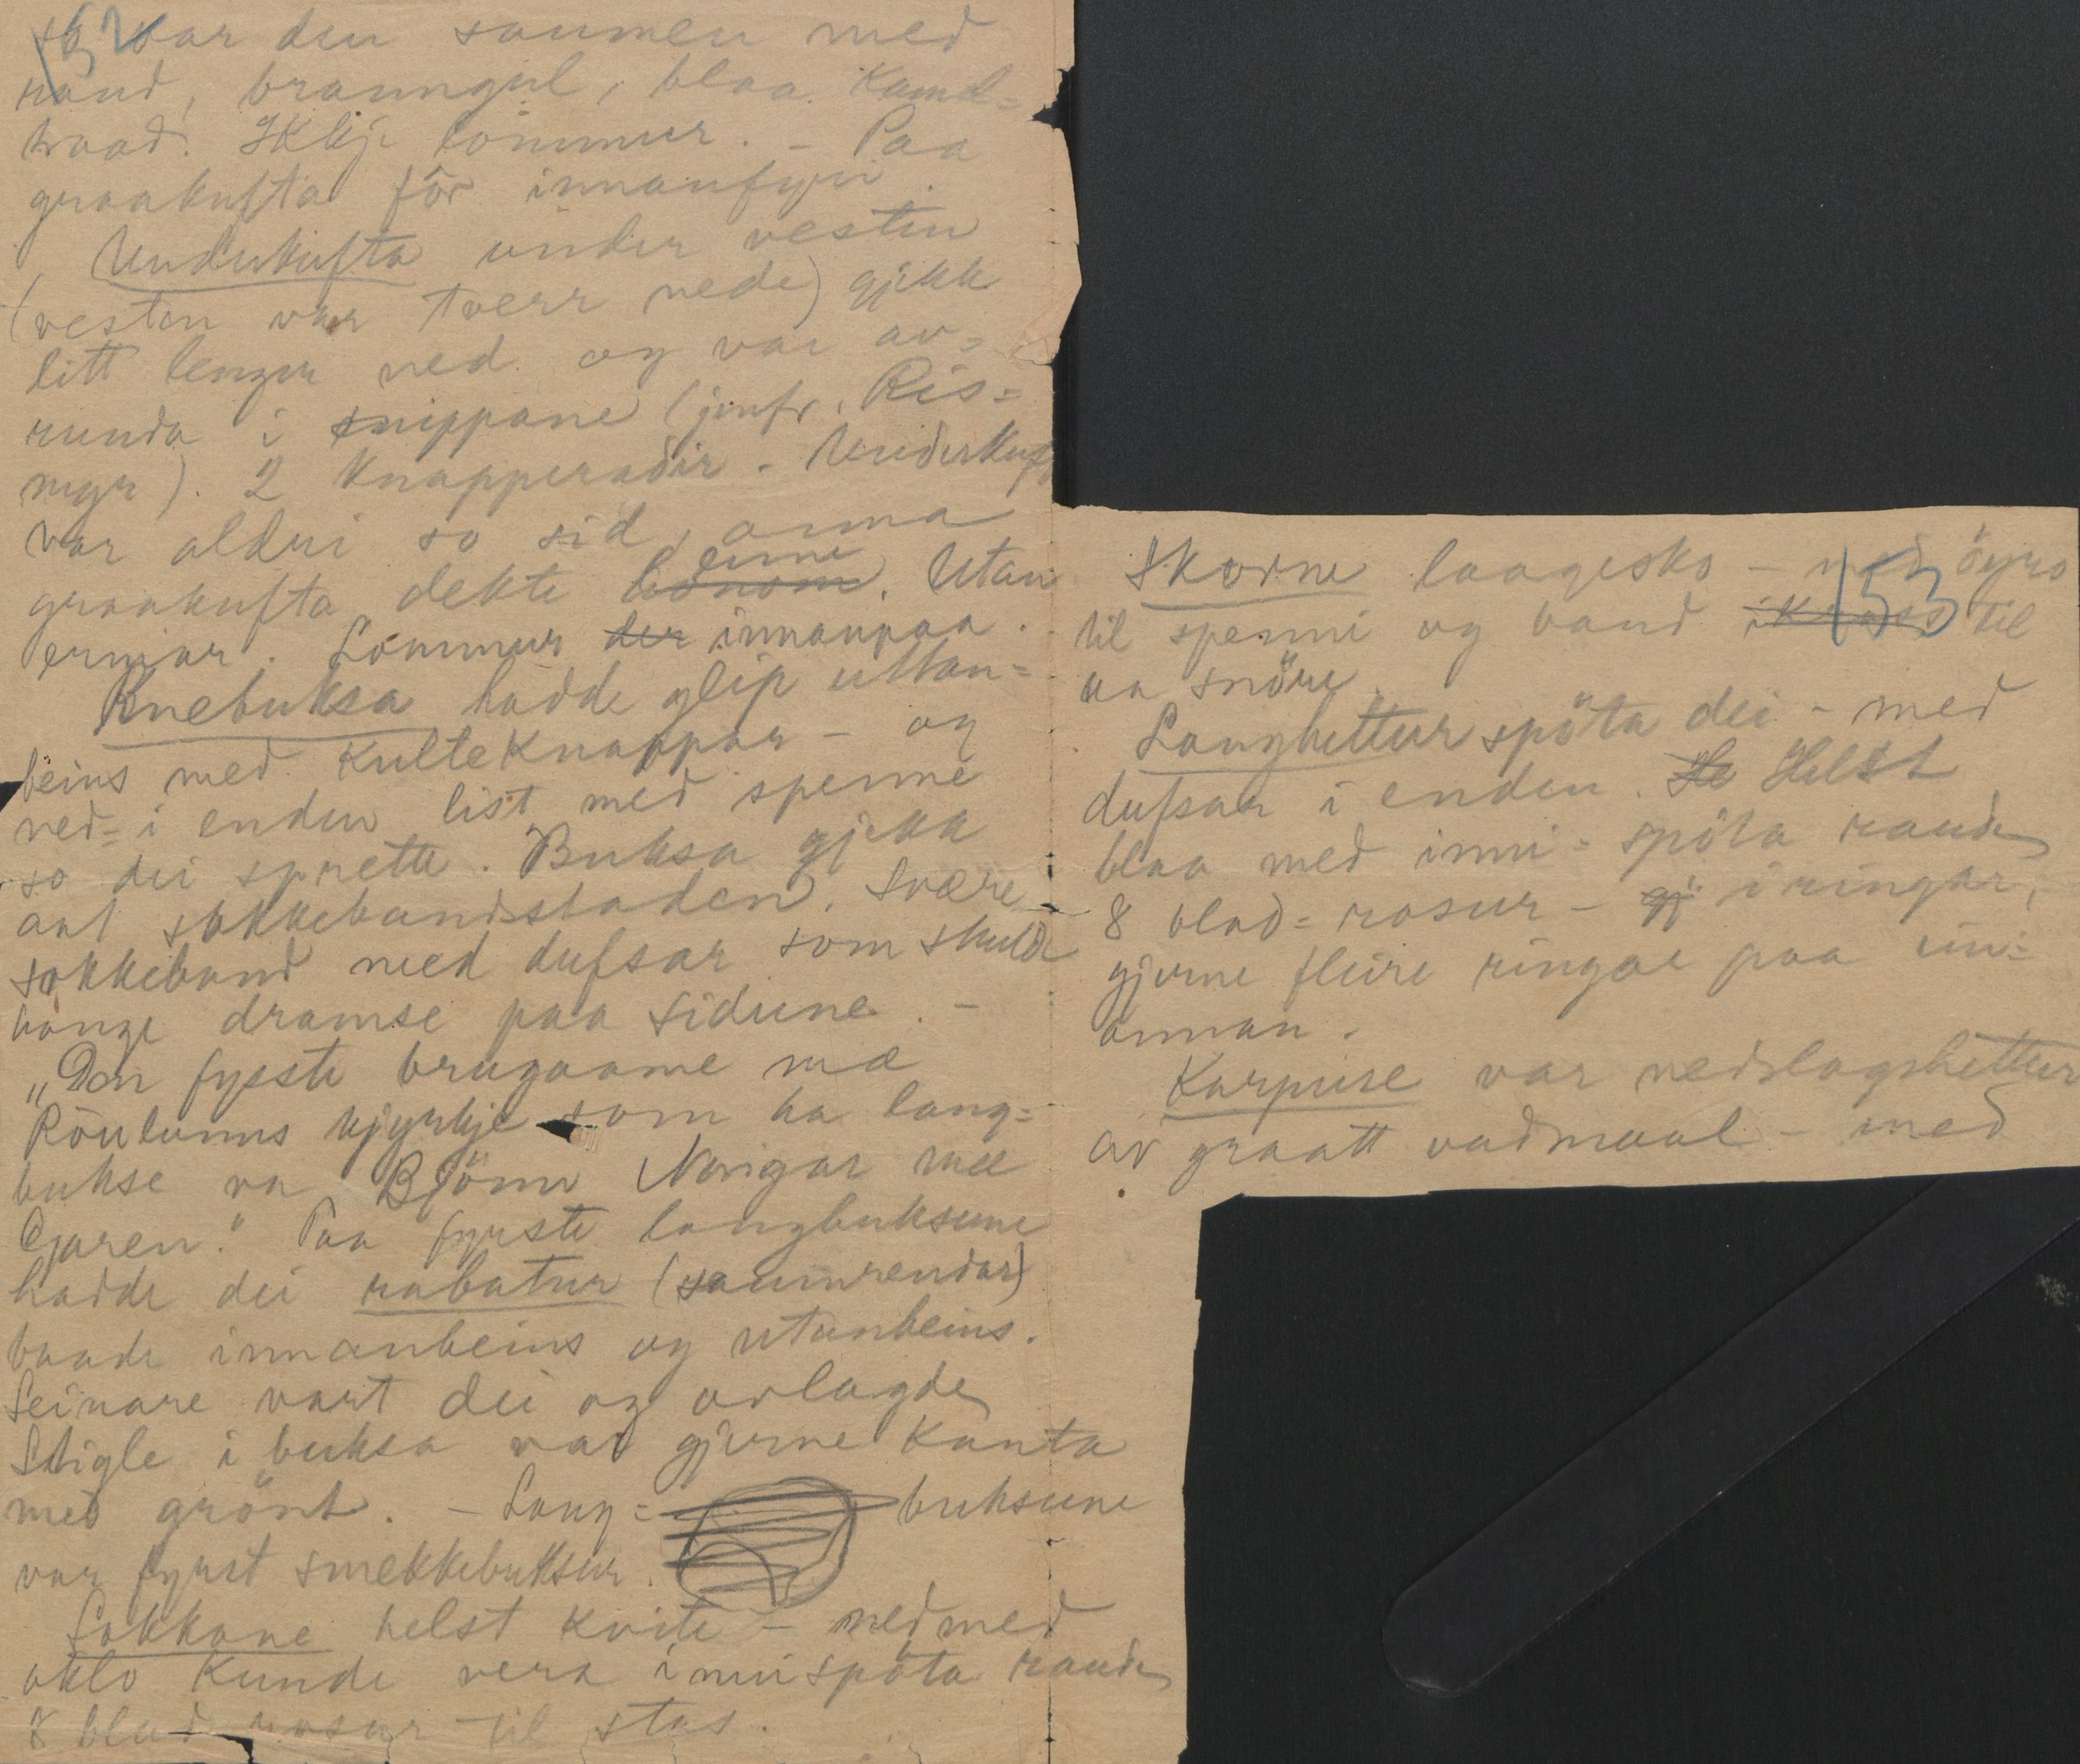 152
so var den saumen med
raud, brunngul, blaa kamel=
traad. Ikkje lommer. – Paa
graakufta fôr innanfyri.
Underkufta under vesten
(vesten var tverr nede) gjekk
litt lenger ned og var av=
runda i snippane (jmfr. Ris=
myr). 2 knapperadir. Underkuft
var aldri so sid, anna
graakufta dekte henne. Utan
ermar. Lommur der innanpaa.
Knebuksa hadde glip uttan=
beins med kulteknappar – og
ned=i enden list med spenne
so dei sprette. Buksa gjekk
aat sokkebandstaden. Svære
sokkeband med dufsar som skulde
hange dramse paa sidune. –
„Den fysste brugaame mæ
Röulanns kjyrkje som ha lang=
bukse va Björn Norigar mæ
Gjaren." Paa fyrste langbuksune
hadde dei rabatur (saumrendar)
baade innanbeins og utanbeins.
Seinare vart dei og avlagde
Stigle i buksa var gjerne kanta
med grönt. – Lang= buksune
var fyrst smekkebuksur.
Sokkane helst kvite – nedmed
oklo kunde vera innispöta raude
8 blad-rosur til stas.
153
Skorne laagesko – med öyro
til spenni og band i kross til
aa snöre.
Langhettur spöta dei – med
dufsar i enden. He Helst
blaa med inni=spöta raude
8 blad=rosur – gj i ringar,
gjerne fleire ringar paa ein=
annan.
Karpuse var nedslagshettur
av graatt vadmaal – med